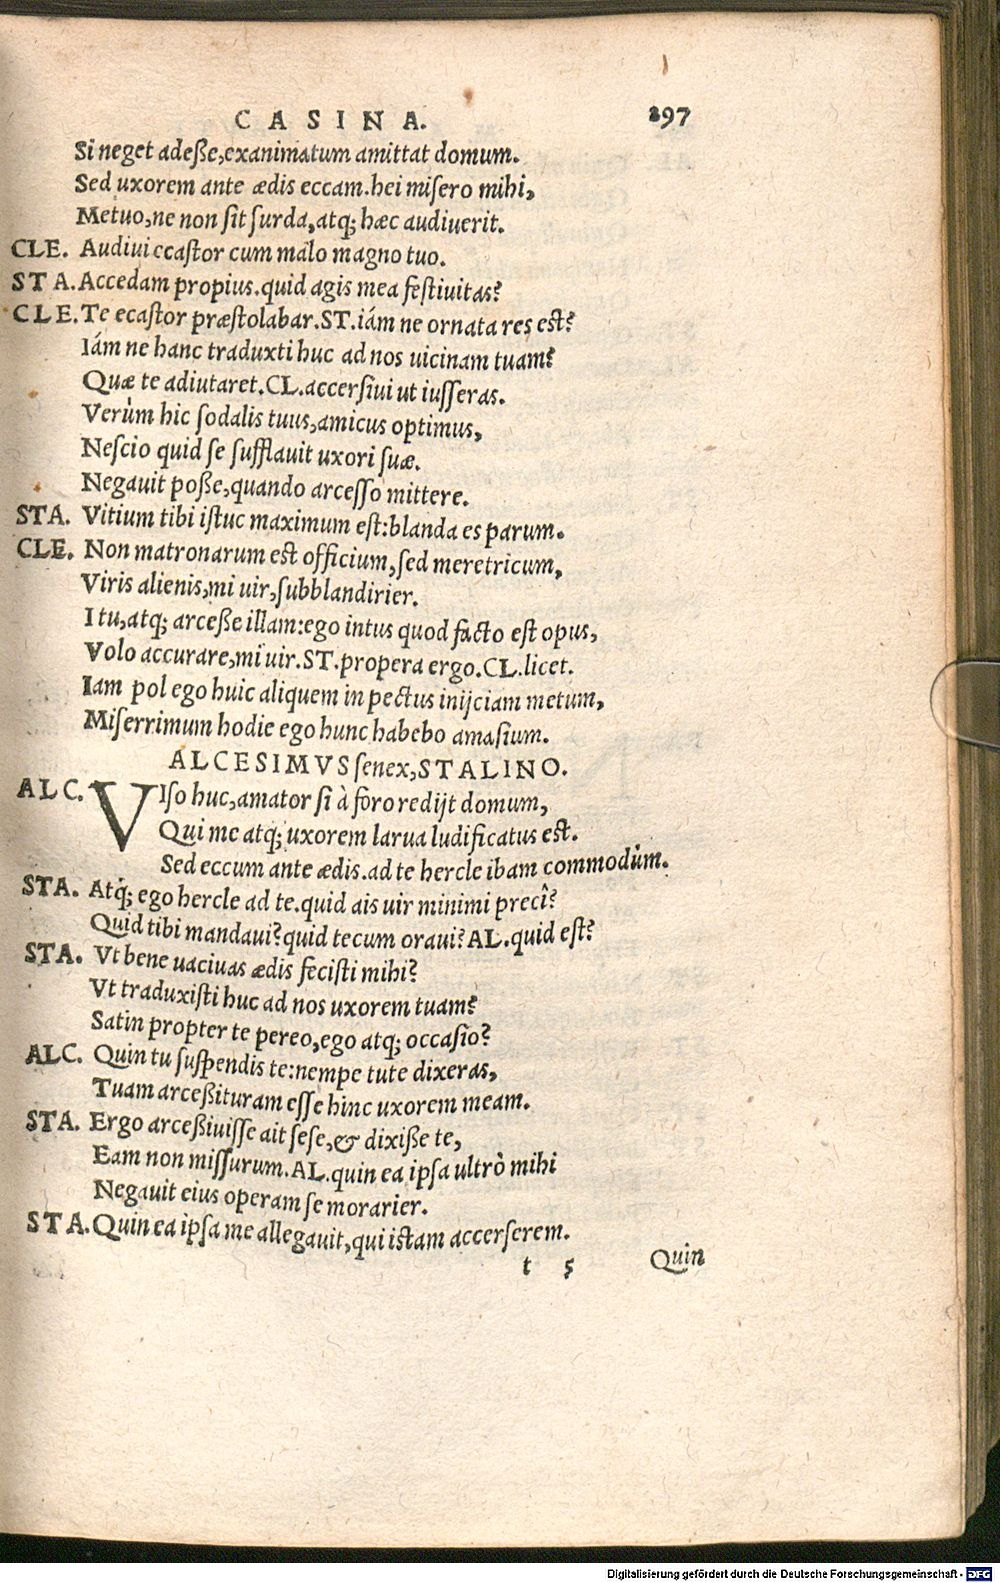 CASINA. 297
Si neget adeße, exanimatum amittat domum.
Sed uxorem ante ædis eccam. hei misero mihi,
Metuo, ne non sit surda, atq; hæc audiuerit.
CLE. Audiui eccastor cum malo magno tuo.
STA. Accedam propius. quid agis mea festiuitas?
CLE. Te ecastor præstolabar. ST. iám ne ornata res est?
Iám ne hanc traduxti huc ad nos uicinam tuam?
Quæ te adiutaret. CL. accersiui ut iusseras.
Verùm hic sodalis tuus, amicus optimus,
Nescio quid se sufflauit uxori suæ.
Negauit poße, quando arcesso mittere.
STA. Vitium tibi istuc maximum est: blanda es parum.
CLE. Non matronarum est officium, sed meretricum,
Viris alienis, mi uir, subblandirier.
I tu, atq; arceße illam: ego intus quod facto est opus,
Volo accurare, mi uir. ST. propera ergo. CL. licet.
Iam pol ego huic aliquem in pectus inijciam metum,
Miserrimum hodie ego hunc habebo amasium.
ALCESIMVS senex, STALINO.
ALC. VIso huc, amator si à foro redijt domum,
Qui me atq; uxorem larua ludificatus est.
Sed eccum ante ædis. ad te hercle ibam commodùm.
STA. Atq́; ego hercle ad te. quid ais uir minimi precî?
Quid tibi mandaui? quid tecum oraui? AL. quid est?
STA. Vt bene uaciuas ædis fecisti mihi?
Vt traduxisti huc ad nos uxorem tuam?
Satin propter te pereo, ego atq; occasio?
ALC. Quin tu suspendis te: nempe tute dixeras,
Tuam arceßituram esse hinc uxorem meam.
STA. Ergo arceßiuisse ait sese, & dixiße te,
Eam non missurum. AL. quin ea ipsa ultrò mihi
Negauit eius operam se morarier.
STA. Quin ea ipsa me allegauit, qui istam accerserem.
t 5 Quin
Digitalisierung gefördert durch die Deutsche Forschungsgemeinschaft - DFG